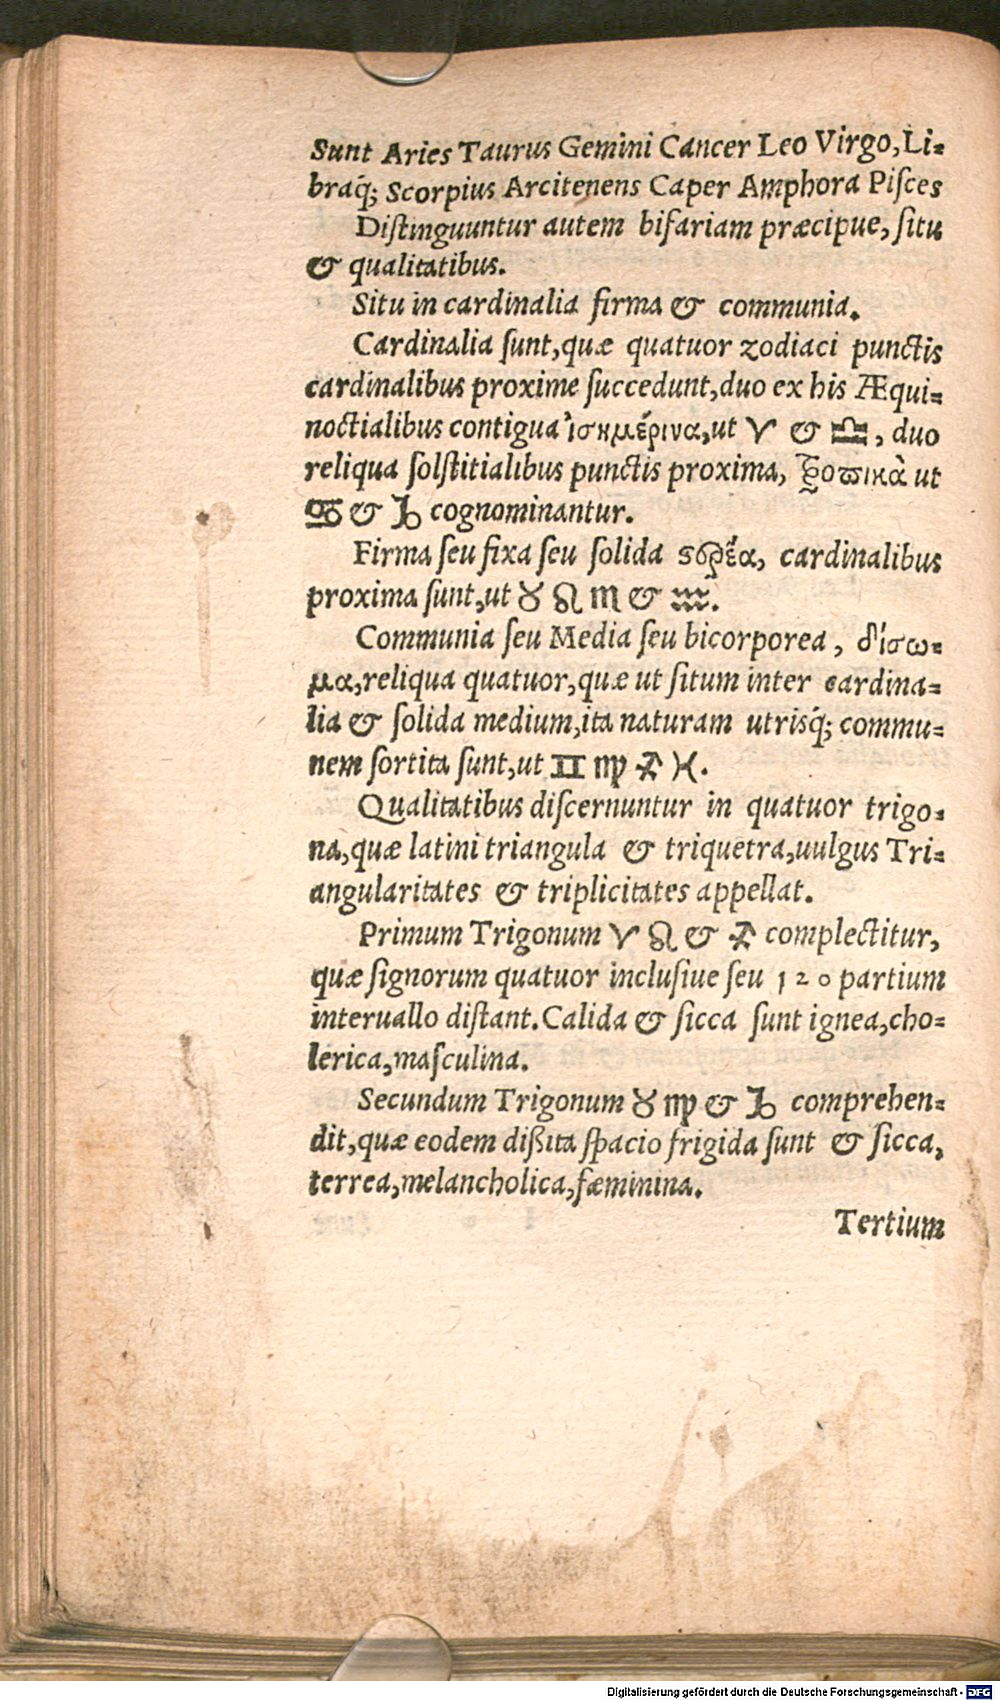 Sunt Aries Taurus Gemini Cancer Leo Virgo, Li=
braq́; Scorpius Arcitenens Caper Amphora Piſces
Diſtinguuntur autem bifariam præcipue, ſitu
& qualitatibus.
Situ in cardinalia firma & communia.
Cardinalia ſunt, quæ quatuor zodiaci punctis
cardinalibus proxime ſuccedunt, duo ex his Æqui=
noctialibus contigua ἰσημέρινα, ut ♈ & ♎, duo
reliqua ſolſtitialibus punctis proxima, τροπικὰ ut
♋ & ♑ cognominantur.
Firma ſeu fixa ſeu ſolida στρέα, cardinalibus
proxima ſunt, ut ♉ ♌ ♏ & ♒.
Communia ſeu Media ſeu bicorporea, δίσω=
μα, reliqua quatuor, quæ ut ſitum inter cardina=
lia & ſolida medium, ita naturam utrisq́; commu=
nem ſortita ſunt, ut ♊ ♍ ♐ ♓.
Qualitatibus diſcernuntur in quatuor trigo=
na, quæ latini triangula & triquetra, uulgus Tri=
angularitates & triplicitates appellat.
Primum Trigonum ♈ ♌ & ♐ complectitur,
quæ ſignorum quatuor incluſiue ſeu 120 partium
interuallo diſtant. Calida & ſicca ſunt ignea, cho=
lerica, maſculina.
Secundum Trigonum ♉ ♍ & ♑ comprehen=
dit, quæ eodem dißita ſpacio frigida ſunt & ſicca,
terrea, melancholica, fæminina.
Tertium
Digitalisierung gefördert durch die Deutsche Forschungsgemeinschaft - DFG